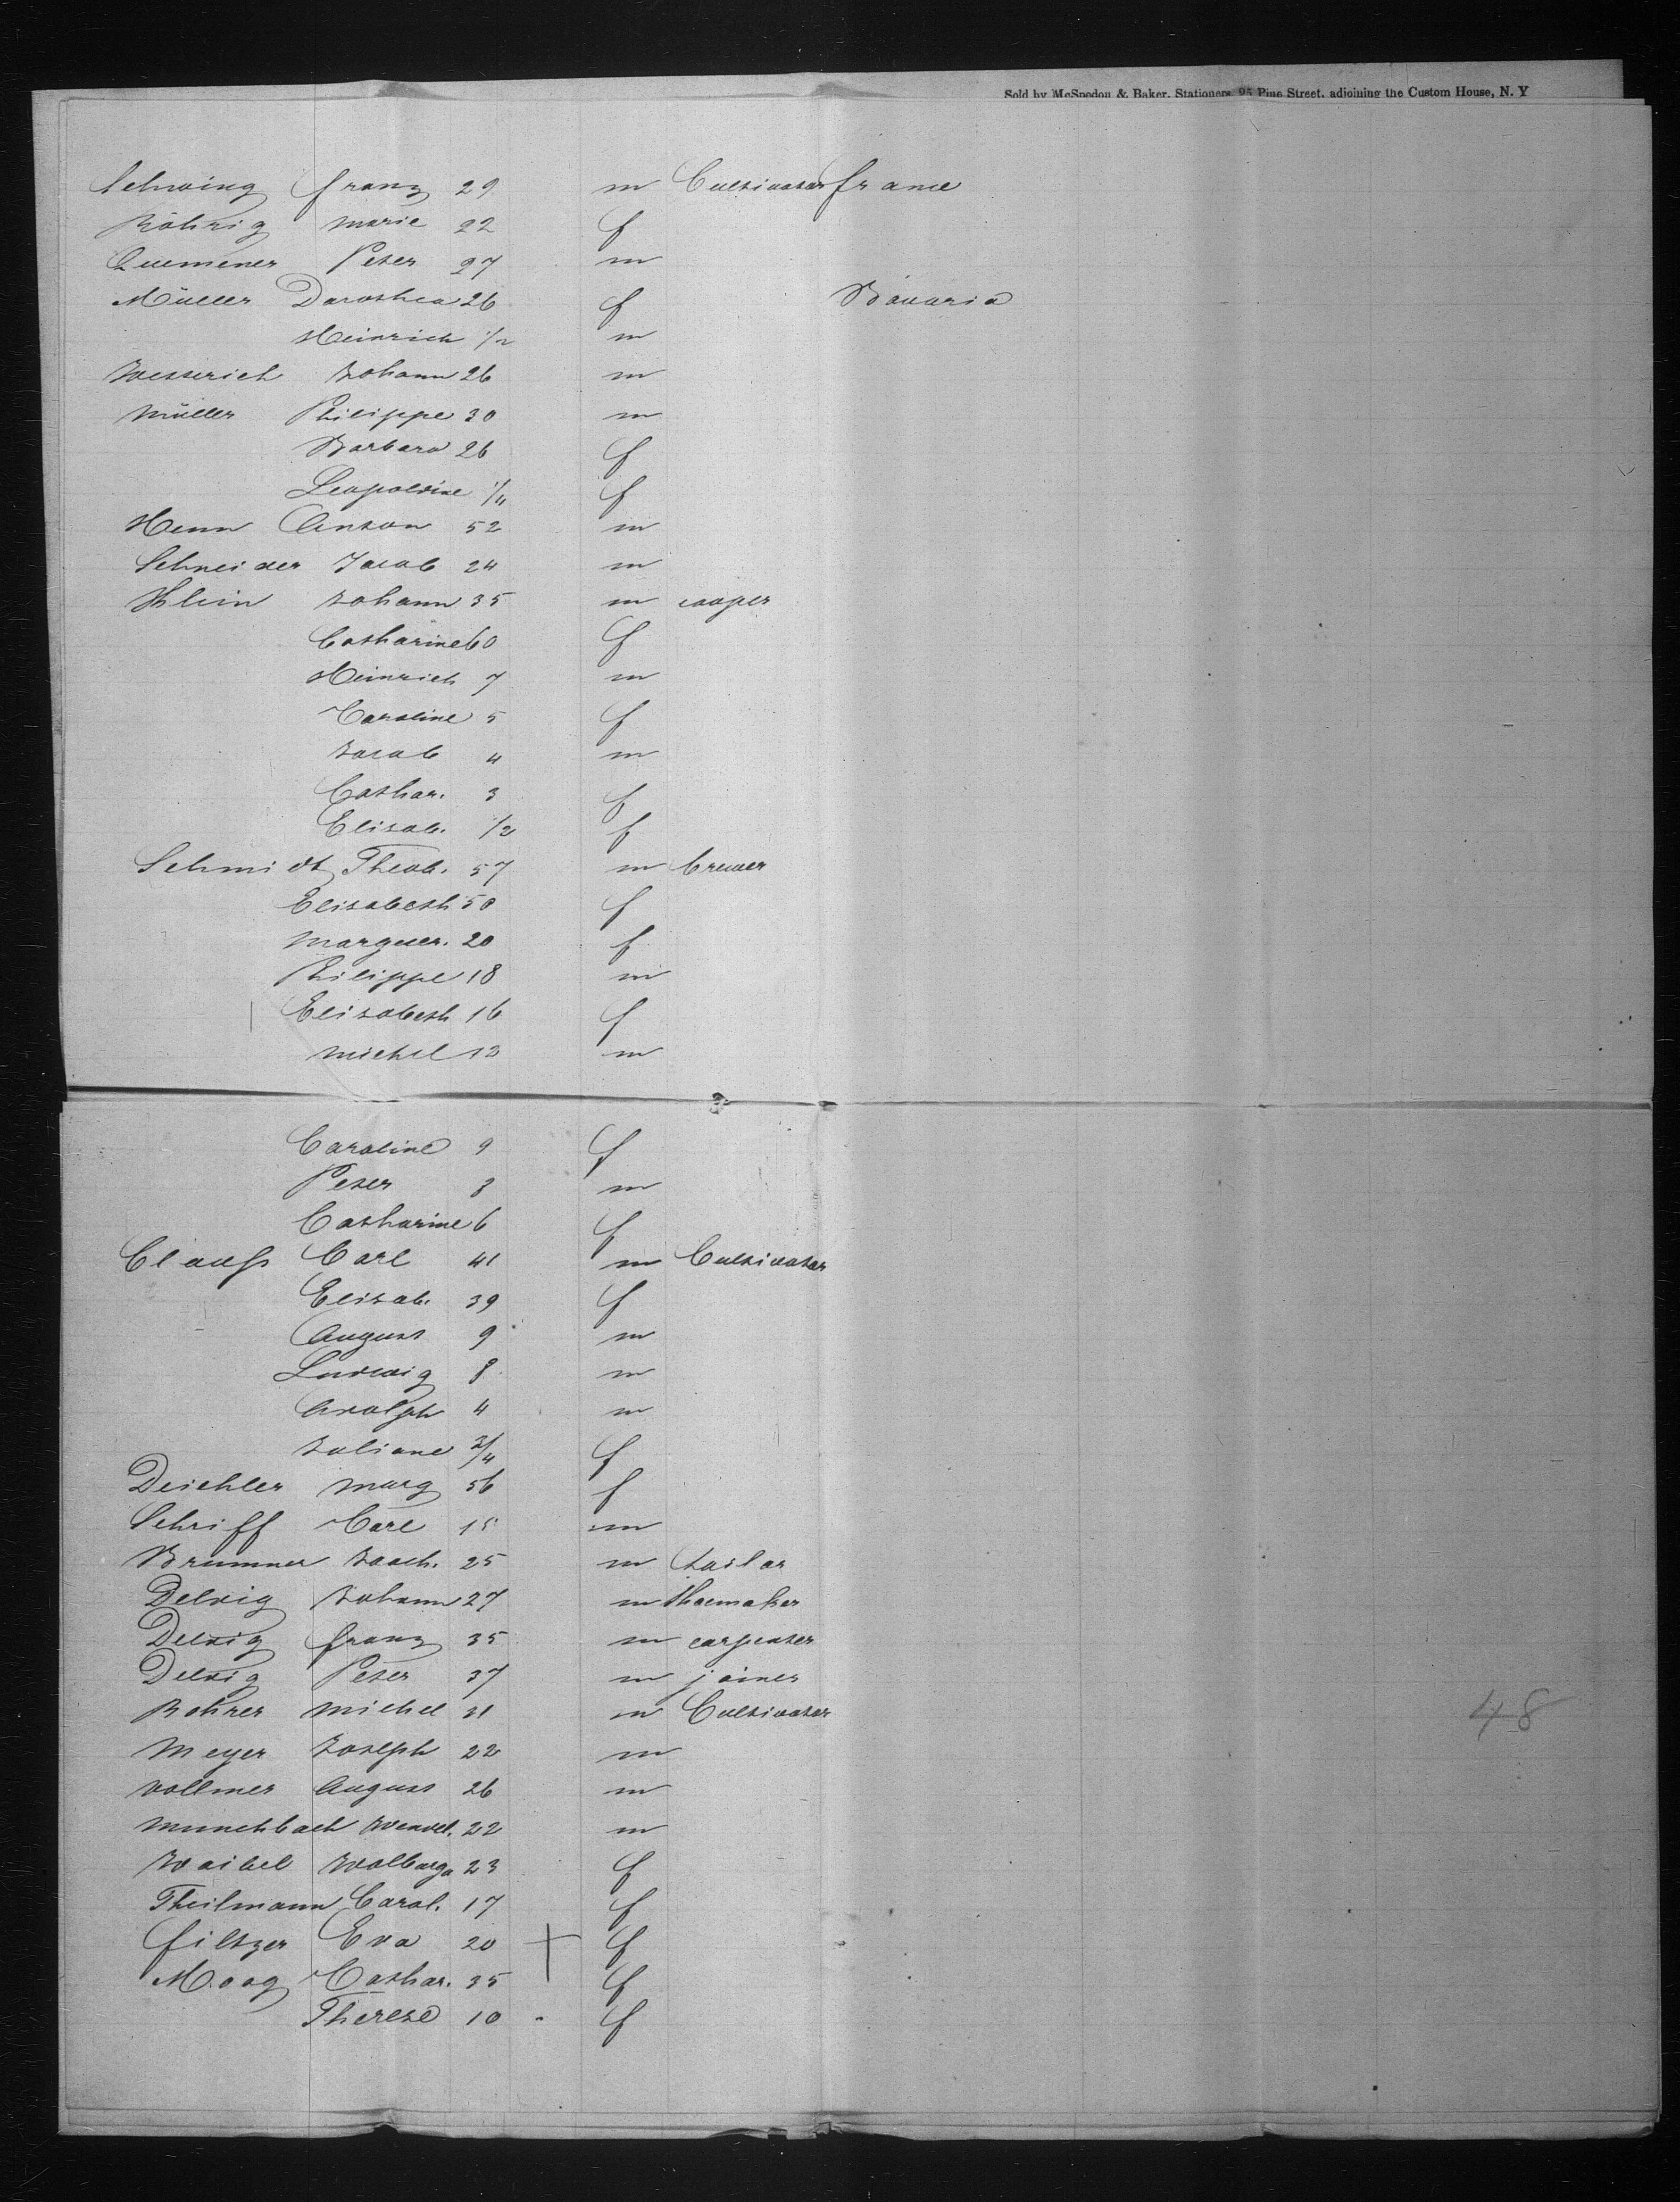 Sold by McSpedon & Baker, Stationers, 25 Pine Street, adjoining the Custom House, N. Y
Schwing Franz 29 m Cultivator France
Röhrig Marie 22 f
Quemener Peter 27 m
Müller Dorothea 26 f Bavaria
Heinrich 1/2 m
Westerich Johann 26 m
Müller Philippe 30 m
Barbara 26 f
Leopoldine 1/4 f
Henn Anton 52 m
Schneider Jacob 24 m
Klein Johann 35 m cooper
Catharine 60 f
Heinrich 7 m
Caroline 5 f
Jacob 4 m
Cathar. 3 f
Elisab. 1/2 f
Schmidt Theob. 57 m brewer
Elisabeth 50 f
Marguer. 20 f
Philippe 18 m
Elisabeth 16 f
Michel 13 m
Caroline 9 f
Peter 8 m
Catharine 6 f
Clauss Carl 41 m Cultivator
Elisab. 39 f
August 9 m
Ludwig 8 m
Adolph 4 m
Juliane 3/4 f
Deichler Marg 56 f
Schriff Carl 15 m
Brummer Joach. 25 m tailor
Delvig Johann 27 m Shoemaker
Delvig Franz 35 m carpenter
Delvig Peter 37 m joiner
Rohrer Michel 31 m Cultivator
48
Meyer Joseph 22 m
Vollmer August 26 m
Munchbach Wendel. 22 m
Waibel Walburga 23 f
Theilmann Carol. 17 f
Filtzer Eva 20 f
Moog Cathar. 35 f
Therese 10 f